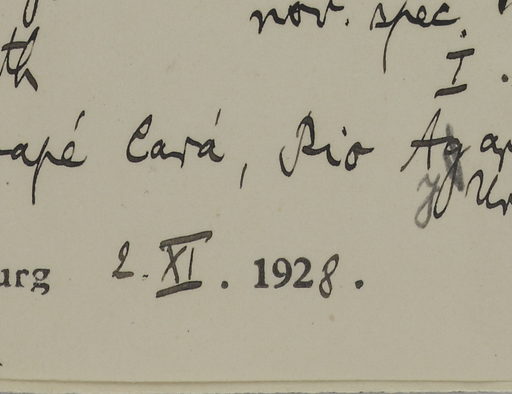 nov. spec.
th
I.
apé Cará, Rio Ag
urg 2. XI. 1928.